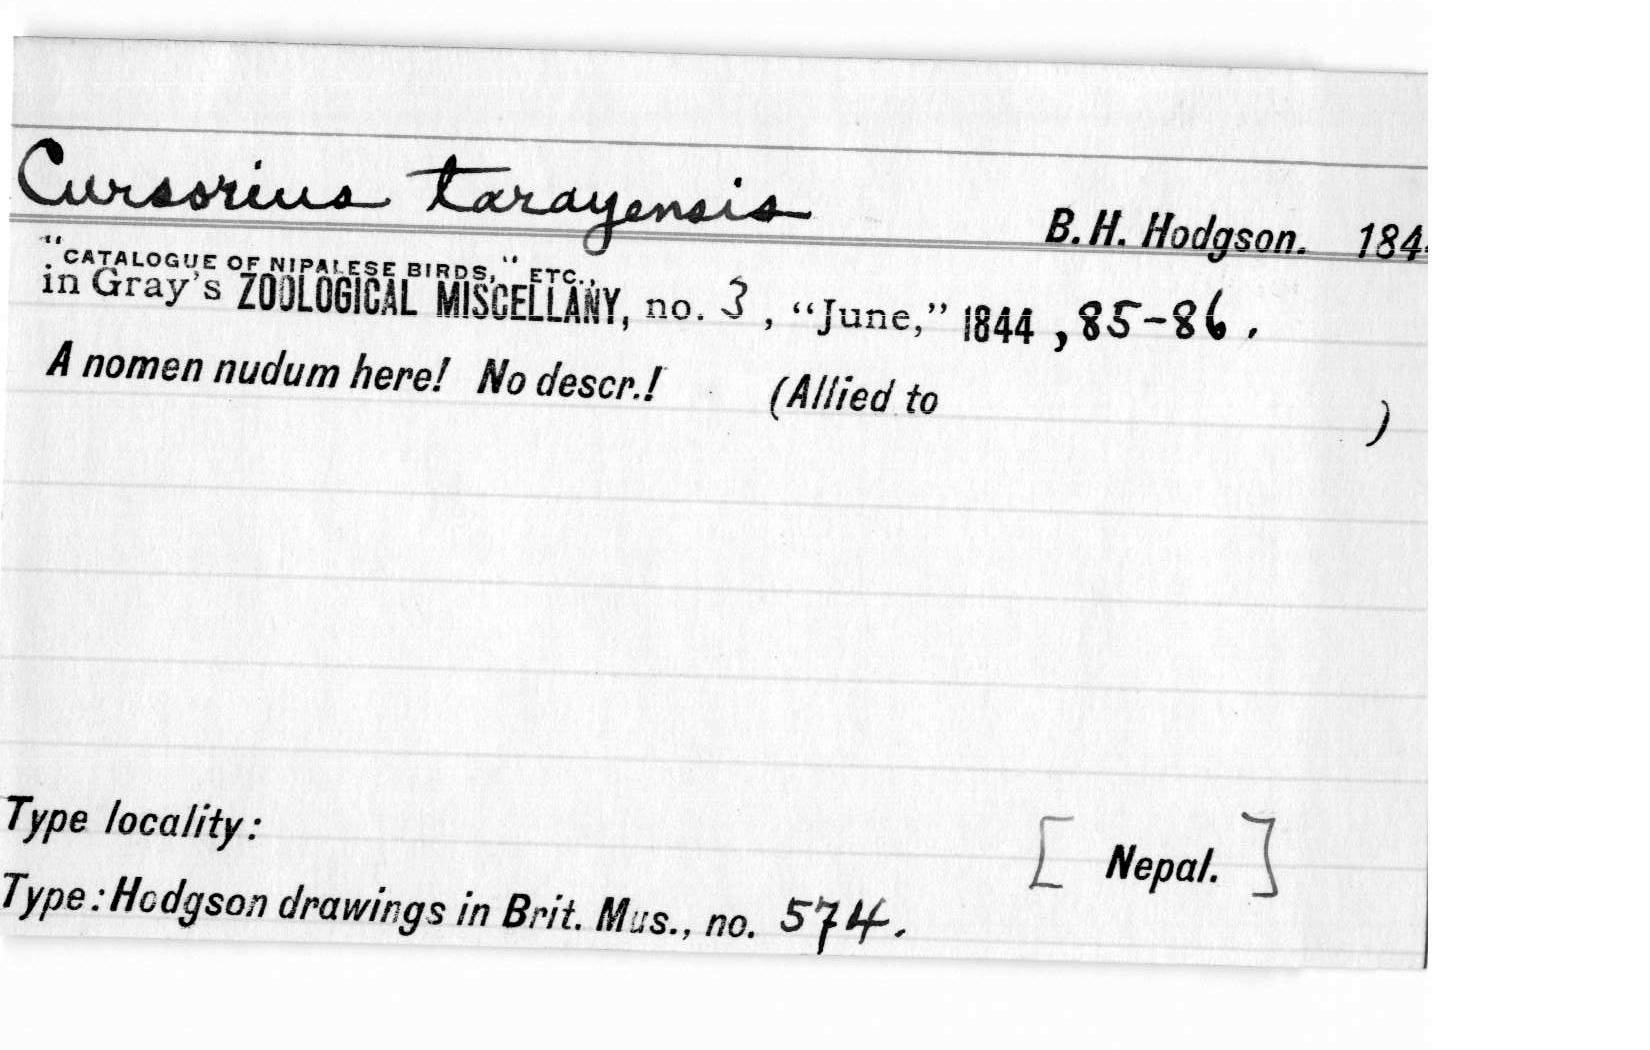 Cursorius tarayensis B. H. Hodgson. 184
"CATALOGUE OF NIPALESE BIRDS," ETC.,
in Gray's ZOOLOGICAL MISCELLANY, no. 3, “June,” 1844, 85-86.
A nomen nudum here! No descr.! (Allied to )
Type locality: [ Nepal. ]
Type: Hodgson drawings in Brit. Mus., no. 574.